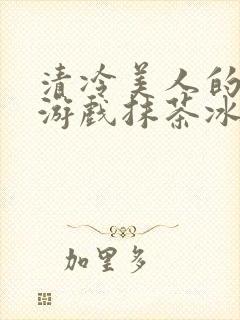 清冷美人的
游戏抹茶冰
加里多